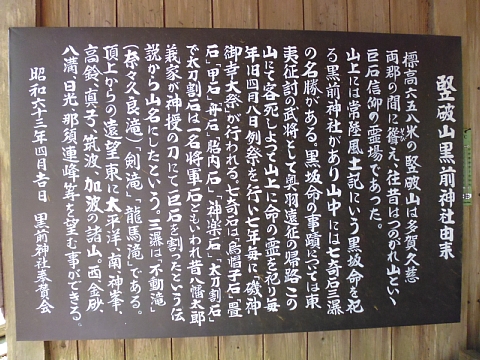 竪破山黒前神社由来
標高六五八米の竪破山は多賀久慈
両郡の間に聳え、往昔はつのがれ山といい
巨石信仰の霊場であった。
山上には常陸風土記にいう黒坂命を祀
る黒前神社があり山中には七奇石三瀑
の名勝がある。黒坂命の事蹟については東
夷征討の武将として奥羽遠征の帰路この
山にて客死しよって山上に命の霊を祀り毎
年旧四月八日例祭を行い七年毎に磯神
御幸大祭が行われる。七奇石は「烏帽子石」「畳
石」「甲石」「舟石」「胎内石」「神楽石」「太刀割石」
で太刀割石は一名将軍石ともいわれ昔八幡太郎
義家が神授の刀にて巨石を割ったという伝
説から山名にしたという。三瀑は「不動滝」
(奈々久良滝)、「剣滝」、「龍馬滝」である。
頂上からの遠望東に太平洋、南、神峯、
高鈴、真弓、筑波、加波の諸山。西金砂、
八溝、日光、那須連峰等を望む事ができる。
昭和六十三年四月吉日 黒前神社奉賛会